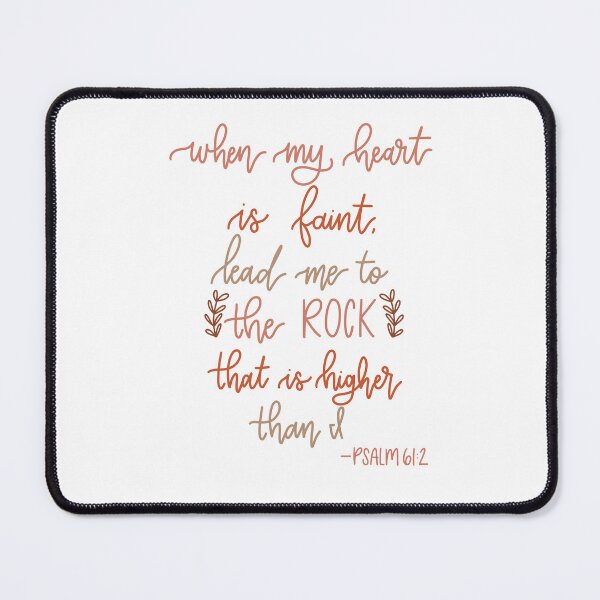 when my heart
is faint,
lead me to
the ROCK
that is higher
than I
-PSALM 61:2